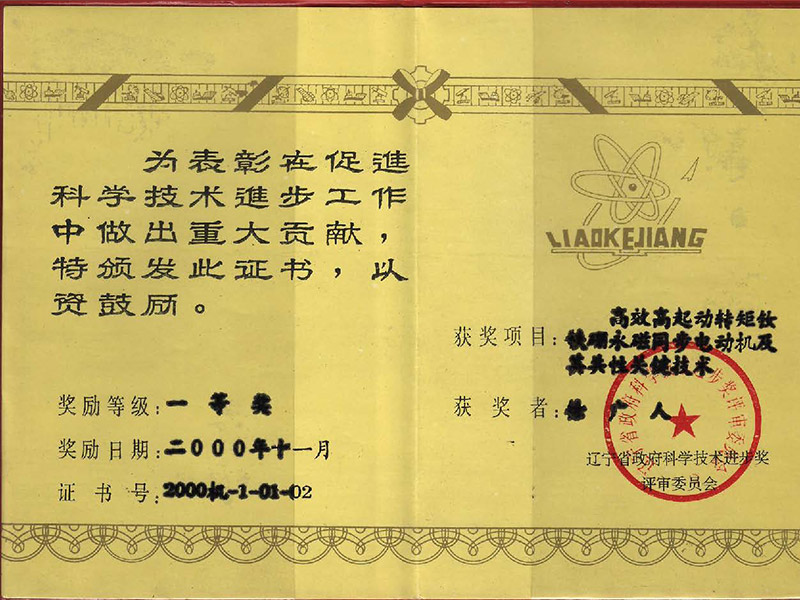 为表彰在促進
科学技术進步工作
中做出重大贡献，
特颁发此证书，以
资鼓励。
奖励等级：一等奖
奖励日期：二000年十一月
证书号：2000机-1-01-02
LIAOKEJIANG
获奖项目：高效高起动转矩钕
铁硼永磁同步电动机及
其共性关健技术
获奖者：广人
辽宁省政府科学技术进步奖
评审委员会